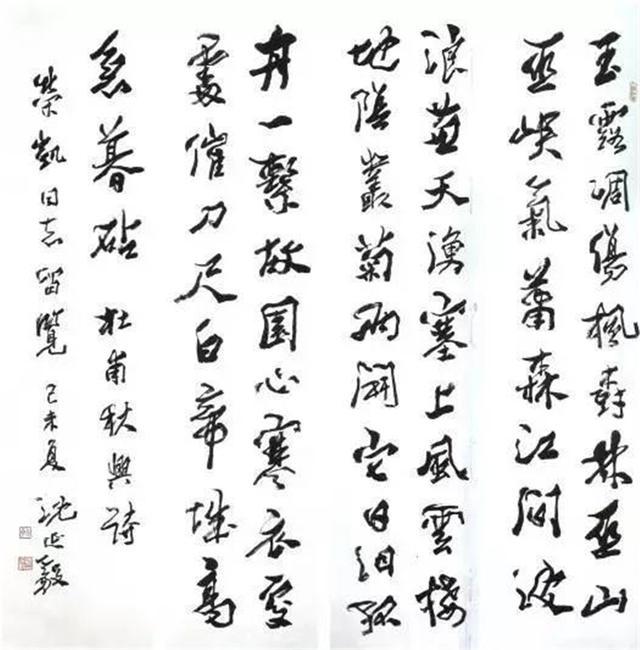 玉露凋傷楓樹林巫山
巫峽氣蕭森江間波
浪兼天湧塞上風雲接
地陰叢菊兩開它日泪孤
舟一繫故園心寒衣處
處催刀尺白帝城高
急暮砧 杜甫秋興詩
榮凱同志留覽 己未夏 沈延毅